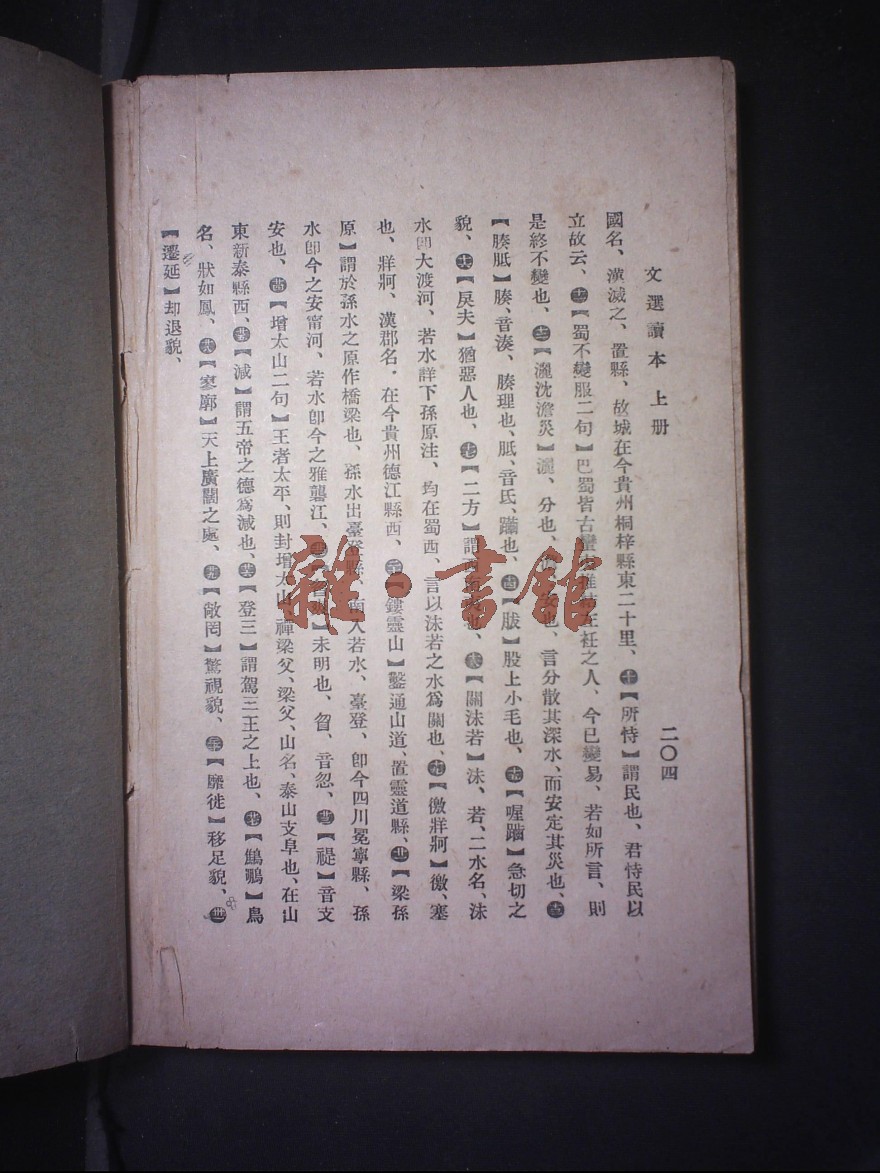 文選讀本 上册
二〇四
國名、漢滅之、置縣、故城在今貴州桐梓縣東二十里、㊉【所恃】謂民也、君恃民以
立故云、【蜀不變服二句】巴蜀皆古蠻 左衽之人、今已變易、若如所言、則
是終不變也、【灑沈澹災】灑、分也、 也、言分散其深水、而安定其災也、
【腠胝】腠、音湊、腠理也、胝、音氏、躪也、【胈】股上小毛也、【喔躪】急切之
貌、【戾夫】猶惡人也、【二方】謂西 也、【關沬若】沬、若、二水名、沬
水卽大渡河、若水詳下孫原注、均在蜀西、言以沬若之水爲關也、【徼牂牁】徼、塞
也、牂牁、漢郡名、在今貴州德江縣西、【鏤靈山】鑿通山道、置靈道縣、【梁孫
原】謂於孫水之原作橋梁也、孫水出臺登縣、南入若水、臺登、卽今四川冕寧縣、孫
水卽今之安甯河、若水卽今之雅龔江、 未明也、曶、音忽、【禔】音支
安也、【增太山二句】王者太平、則封增太山、禪梁父、梁父、山名、泰山支阜也、在山
東新泰縣西、【減】謂五帝之德爲減也、【登三】謂駕三王之上也、【鷦鵬】鳥
名、狀如鳳、【寥廓】天上廣闊之處、【敞罔】驚視貌、【靡徙】移足貌、
【遷延】却退貌、
雜·書館